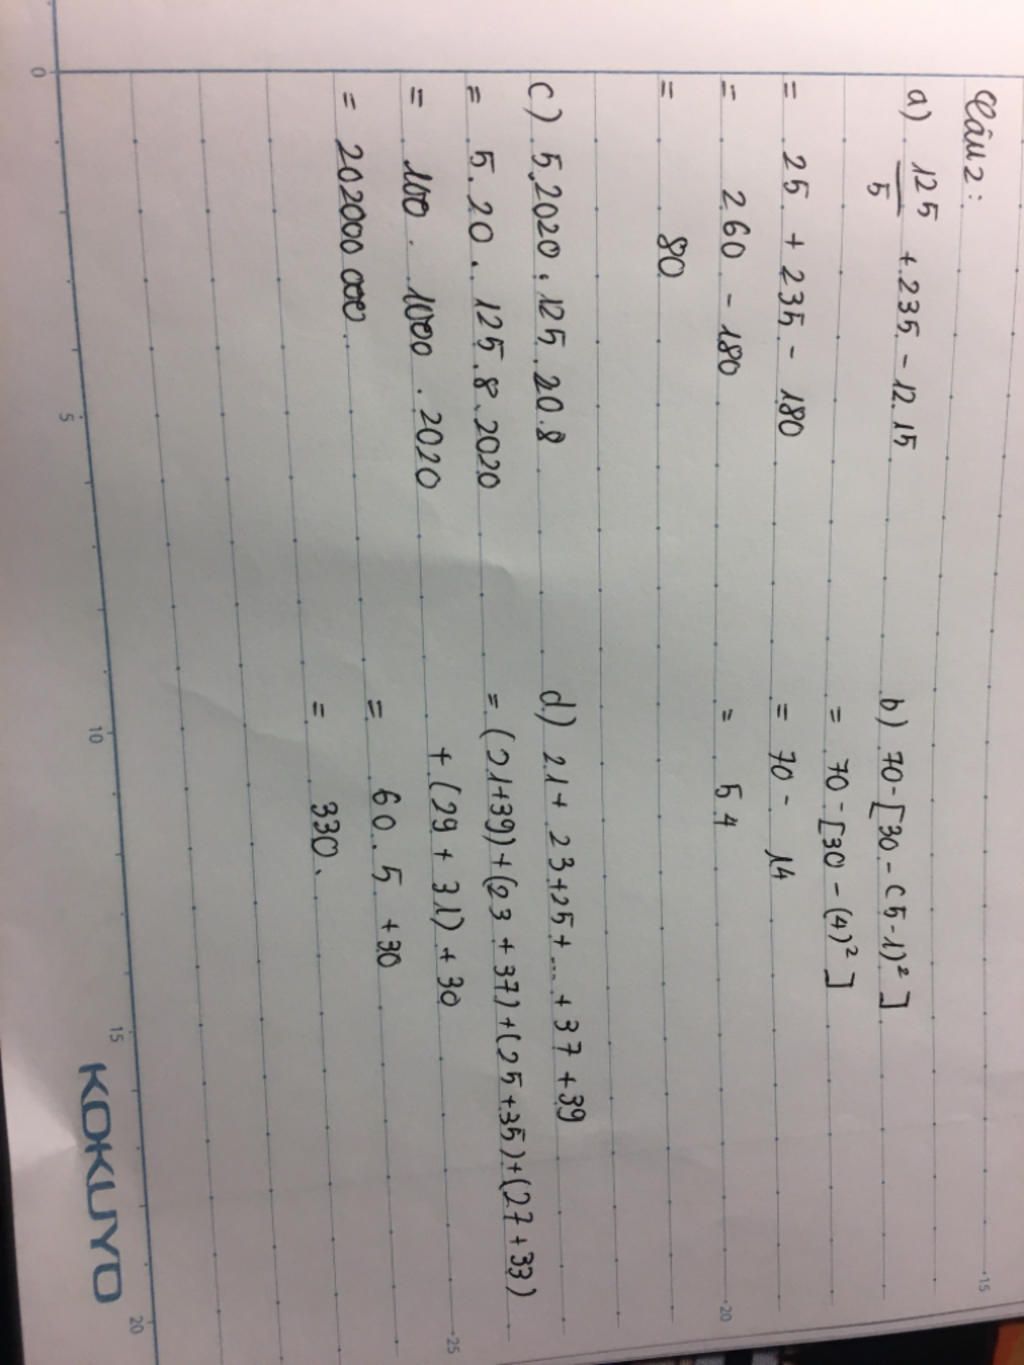 Câu 2:
a) 125/5 + 235 - 12.15
= 25 + 235 - 180
= 260 - 180
= 80
b) 70 - [30 - (5-1)² ]
= 70 - [30 - (4)² ]
= 70 - 14
= 54
c) 5.2020.125.20.8
= 5.20.125.8.2020
= 100.1000.2020
= 202000 000
d) 21 + 23 + 25 + ... + 37 + 39
= (21+39) + (23 + 37) + (25 + 35) + (27 + 33)
+ (29 + 31) + 30
= 60.5 + 30
= 330.
0
5
10
15
20
15
20
25
KOKUYO